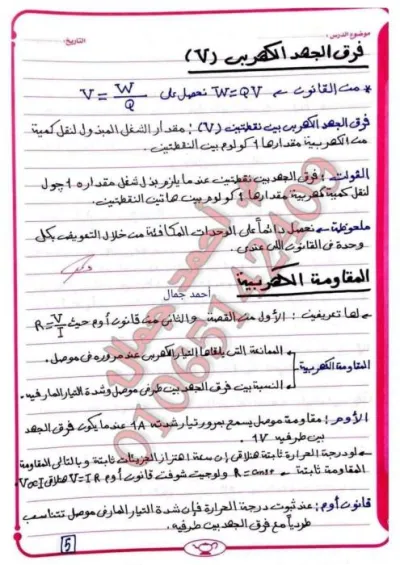 موضوع الدرس :
التاريخ:
فرق الجهد الكهربى (V)
* من القانون W=QV نحصل على V = W/Q
فرق الجهد الكهربى بين نقطتين (V) : مقدار الشغل المبذول لنقل كمية
من الكهربية مقدارها 1 كولوم بين النقطتين.
الفولت : فرق الجهد بين نقطتين عندما يلزم بذل شغل مقداره 1 جول
لنقل كمية كهربية مقدارها 1 كولوم بين هاتين النقطتين.
ملحوظة نحصل دائماً على الوحدات المكافئة من خلال التعويض بكل
وحدة فى القانون اللى عندى.
المقاومة الكهربية
أحمد جمال
لها تعريفين : الأول من القصة والثانى من قانون أوم حيث R = V/I
المقاومة الكهربية
الممانعة التى يلقاها التيار الكهربى عند مروره فى موصل.
النسبة بين فرق الجهد بين طرفى موصل وشدة التيار المار فيه.
الأوم : مقاومة موصل يسمح بمرور تيار شدته 1A عندما يكون فرق الجهد
بين طرفيه 1V.
لو درجة الحرارة ثابتة هتلاقى إن سعة اهتزاز الجزيئات ثابتة وبالتالى المقاومة
المقاومة ثابتة R = const ولو جيت شوفت قانون أوم V=IR هتلاقى V∝I
قانون أوم : عند ثبوت درجة الحرارة فإن شدة التيار المار فى موصل تتناسب
طردياً مع فرق الجهد بين طرفيه.
5
أحمد جمال
01065142409